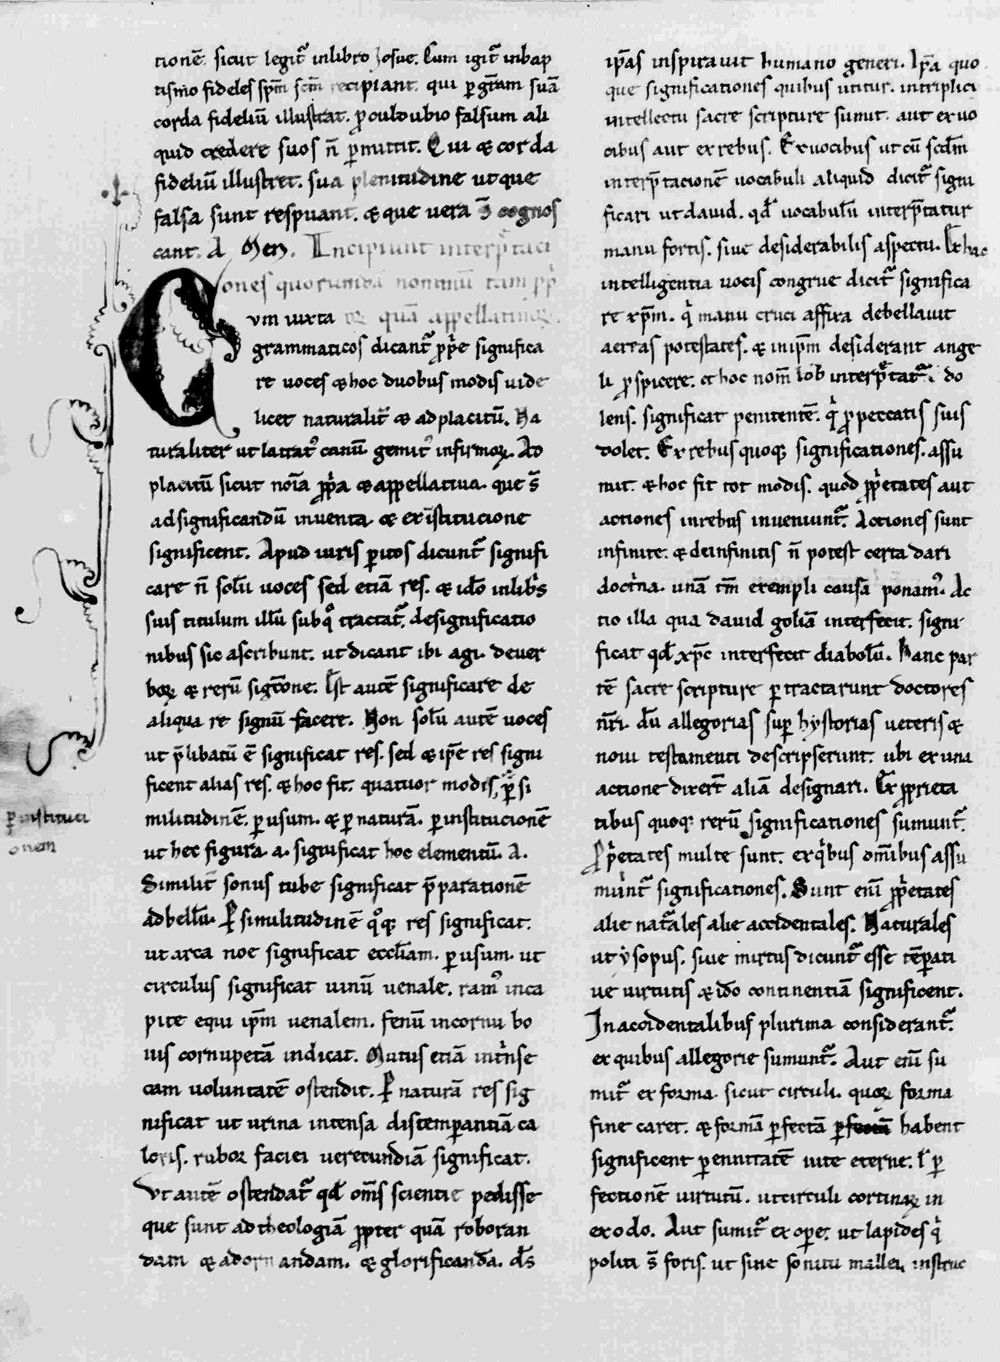 tionē. sicut legit᷑ inlibro Josue. Cum igit᷑ inbap
tismo fideles sp̄m sc̄m recipiant. qui ꝑ gr̄am suā
corda fideliū illustrat. ꝓculdubio falsum ali
quid credere suos n̄ ꝑmittit. Qui & corda
fideliū illustret. sua plenitudine utque
falsa sunt respuant. & que vera s̄ cognos
cant. A Men. Incipiunt interp̄taci
ones quorumdā nominū tam ꝓp
quā appellatiuoꝝ.
Vm iuxta
grammaticos dicant᷑ ꝓprie significa
re uoces & hoc duobus modis uide
licet naturalit᷑ & adplacitū. Na
turaliter ut latrat᷒ canū gemit᷒ infirmoꝝ. Ad
placitū sicut noīa ꝓpa & appellatiua. que s̄
adsignificandū inuenta. & ex īstitucione
significent. Apud iuris ꝑitos dicunt᷑ signifi
care n̄ solū uoces sed etiā res. & ido inlibs
suis titulum illū subqͦ tractat᷑. designificatio
nibus sic ascribunt. ut dicant ibi agi. deuer
boꝝ & rerū siḡtione. Est autē significare de
aliqua re signū facere. Non solū autē uoces
ut p̄libatū ē significat res. sed & ip̄e res signi
ficent alias res. & hoc fit. quatuor modis. ꝑ si
militudinē. ꝑ usum. & ꝑ naturā. ꝑ institucionē
ut hec figura. a. significat hoc elementū. A.
Similit᷑ sonus tube significat p̄parationē
adbellū. Ꝑ similitudinē qͦqꝫ res significat.
ut arca noe significat eccl̄iam. ꝑ usum. ut
circulus significat uinū uenale. ram᷒ inca
pite equi ip̄m uenalem. fenū incornu bo
uis cornupetā indicat. Nutus etiā int᷑nse
cam voluntatē ostendit. Ꝑ naturā res sig
nificat ut urina intensa distemꝑantiā ca
loris. rubor faciei uerecundiā significat.
Vt autē ostendat᷑ qđ om̄s scientie pedisse
que sunt ad theologiā ꝓpter quā roboran
dam & adornandam. & glorificandā. d̄s
ꝑ instituci
onem
ip̄as inspirauit humano generi. Ip̄a quo
que significationes quibus utitur. intriplici
intellectu sacre scripture sumit. aut ex uo
cibus aut ex rebus. Ex uocibus ut cū scdm̄
interp̄tacionē uocabuli aliquid dicit᷑ signi
ficari ut dauid. qđ uocabulū interp̄tatur
manu fortis. siue desiderabilis aspectu. Ex hac
intelligentia uocis congrue dicit᷑ significa
re xp̄m. qͥ manu cruci affixa debellauit
aereas potestates. & inip̄m desiderant ange
li ꝓspicere. et hoc nom̄ Iob interp̄tat᷑. do
lens. significat penitentē. qͥ ꝓ peccatis suis
dolet. Ex rebus quoqꝫ significationes. assu
mit. & hoc fit tot modis. quod ꝓpͥetates aut
actiones inrebus inueniunt᷑. Actiones sunt
infinite. & deinfinitis n̄ potest certa dari
doctͥna. unā tm̄ exempli causa ponam᷒. Ac
tio illa qua dauid goliā interfecit. signi
ficat qđ xp̄c interfecit diabolū. Hanc par
tē sacre scripture ꝑtractarunt doctores
nr̄i. dū allegorias suꝑ hystorias ueteris &
noui testamenti descripserunt. ubi ex una
actione dixer̄t aliā designari. Ex ꝓprieta
tibus quoqꝫ rerū significationes sumunt᷑.
Ꝓpͥetates multe sunt. ex qͥbus om̄ibus assu
munt᷑ significationes. Sunt enī ꝓpͥetates
alie nat᷑ales alie accidentales. Naturales
ut ysopus. siue mirtus dicunt᷑ esse tēꝑati
ue uirtutis & ido continentiā significent.
In accidentalibus plurima considerant᷑.
ex quibus allegorie sumunt᷑. Aut enī su
mit᷑ ex forma. sicut circuli. quoꝝ forma
fine caret. & formā ꝑfectā habent
significent ꝑennitatē uite eterne. ł ꝑ
fectionē uirtutū. ut circuli cortinaꝝ in
exodo. Aut sumit᷑ ex oꝑe. ut lapides qͥ
politi s̄ foris. ut sine sonitu mallei instruc